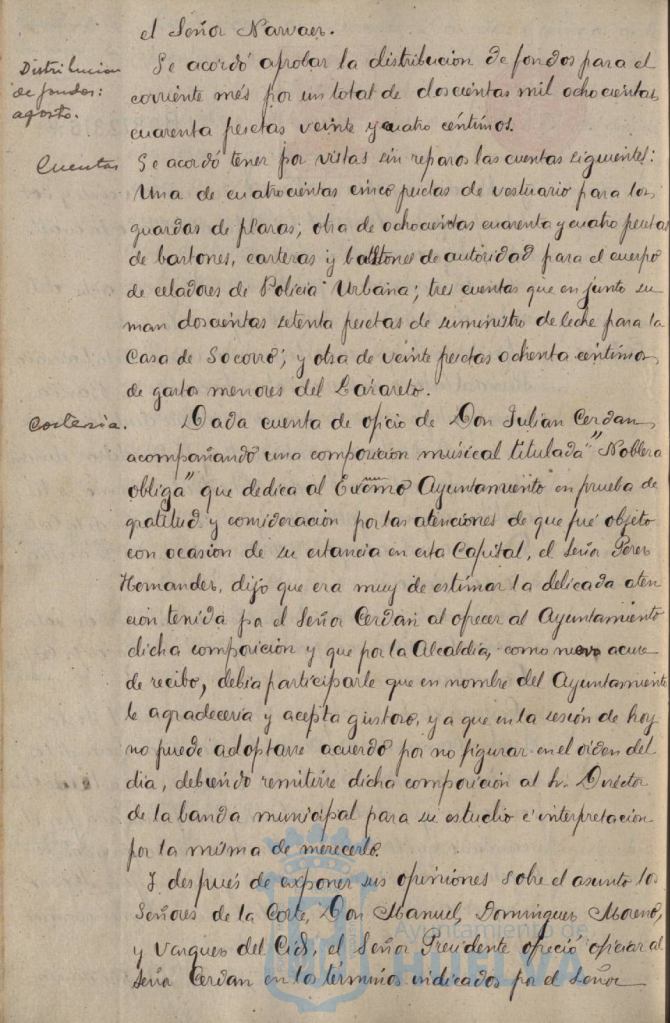 el Señor Narvaez.
Distribucion
de fondos:
agosto.
Se acordó aprobar la distribucion de fondos para el
corriente més por un total de doscientas mil ochocientas
cuarenta pesetas veinte y cuatro céntimos.
Cuentas
Se acordó tener por vistas sin reparos las cuentas siguientes:
Una de cuatrocientas cinco pesetas de vestuario para los
guardas de plazas; otra de ochocientas cuarenta y cuatro pesetas
de bastones, carteras y bastones de autoridad para el cuerpo
de celadores de Policia Urbana; tres cuentas que en junto su
man doscientas setenta pesetas de suministro de leche para la
Casa de Socorro; y otra de veinte pesetas ochenta centimos
de gasto menores del Lazareto.
Cortesia.
Dada cuenta de oficio de Don Julian Cerdan,
acompañando una composicion musical titulada "Nobleza
obliga" que dedica al Excmo Ayuntamiento en prueba de
gratitud y consideracion por las atenciones de que fué objeto
con ocasion de su estancia en esta Capital, el Señor Perez
Hernandez, dijo que era muy de estimar la delicada aten
cion tenida por el Señor Cerdan al ofrecer al Ayuntamiento
dicha composicion y que por la Alcaldia, como mero acuse
de recibo, debia participarle que en nombre del Ayuntamiento
le agradeceria y acepta gustoso, ya que en la sesión de hoy
no puede adoptarse acuerdo por no figurar en el orden del
dia, debiendo remitirse dicha composicion al Sr. Director
de la banda municipal para su estudio é interpretacion
por la misma de merecerlo.
Y despues de exponer sus opiniones sobre el asunto los
Señores de la Corte, Don Manuel, Dominguez Moreno,
y Vazquez del Cid, el Señor Presidente ofreció oficiar al
Señor Cerdan en los términos indicados por el Señor
Ayuntamiento de
HUELVA